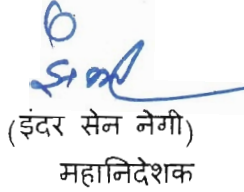 (इंदर सेन नेगी)
महानिदेशक